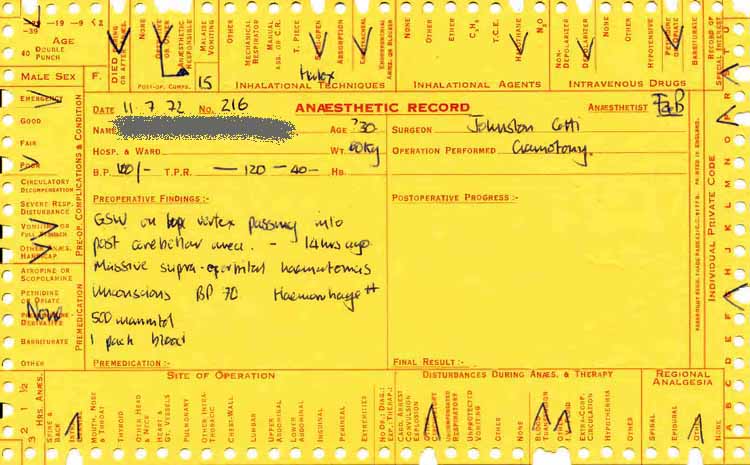 -39
-19-9
AGE
40 DOUBLE PUNCH
MALE SEX
F.
SPEED
OR AFTER
NONE
OR
ANÆSTHETIC RESPONSIBLE
MALAISE
VOMITING
OTHER
MECHANICAL RESPIRATOR
MANUAL ASS. OR C.R.
T. PIECE
ABSORPTION
NONE
OTHER
ETHER
C₃H₆
T.C.E.
HALOTHANE
N₂O
OTHER
NON-DEPOLARIZER
DEPOLARIZER
HYPOTENSIVE
BARBITURATE
RECORD OF SPECIAL INTEREST
POST-OP. COMPS.
15
INHALATIONAL TECHNIQUES
INHALATIONAL AGENTS
INTRAVENOUS DRUGS
EMERGENCY
GOOD
FAIR
POOR
CIRCULATORY DECOMPENSATION
SEVERE RESP. DISTURBANCE
VOMITING OR FULL STOMACH
OTHER ANÆS. HANDICAP
PRE-OP. COMPLICATIONS & CONDITION
ATROPINE OR SCOPOLAMINE
PETHIDINE OR OPIATE
None
DERIVATIVE
BARBITURATE
OTHER
PREMEDICATION
DATE 11.7.72 No. 216 ANÆSTHETIC RECORD ANÆSTHETIST
NAME AGE ?30 SURGEON Johnston
HOSP. & WARD WT. 60kg OPERATION PERFORMED Craniotomy.
B.P. 100/- T.P.R. — 120 — 40 — HB.
PREOPERATIVE FINDINGS :- POSTOPERATIVE PROGRESS :-
GSW on top vertex passing into
post cerebellar area. - 14 hrs ago.
Massive supra-orbital haematomas
Unconscious BP 70 Haemorrhage ++
500 mannitol
1 pack blood
PREMEDICATION :- FINAL RESULT :-
INDIVIDUAL PRIVATE CODE
PRINTED IN ENGLAND.
A B C D E F G H I J K L M N O P
SITE OF OPERATION
DISTURBANCES DURING ANÆS. & THERAPY
REGIONAL ANALGESIA
3 2 1 ½
HRS. ANÆS.
SPINE & BACK
MOUTH, NOSE & THROAT
THYROID
OTHER HEAD & NECK
HEART & GT. VESSELS
PULMONARY
OTHER INTRA-THORACIC
CHEST-WALL
LUMBAR
UPPER ABDOMINAL
LOWER ABDOMINAL
INGUINAL
PERINEAL
EXTREMITIES
CARD. ARREST
CONVULSION
EXPLOSION
RESPIRATORY
UNPROTECTED VOMITING
OTHER
NONE
BLOOD TRANSFUSION
EXTRA-CORP. CIRCULATION
HYPOTHERMIA
OTHER
NONE
SPINAL
EPIDURAL
OTHER
NONE